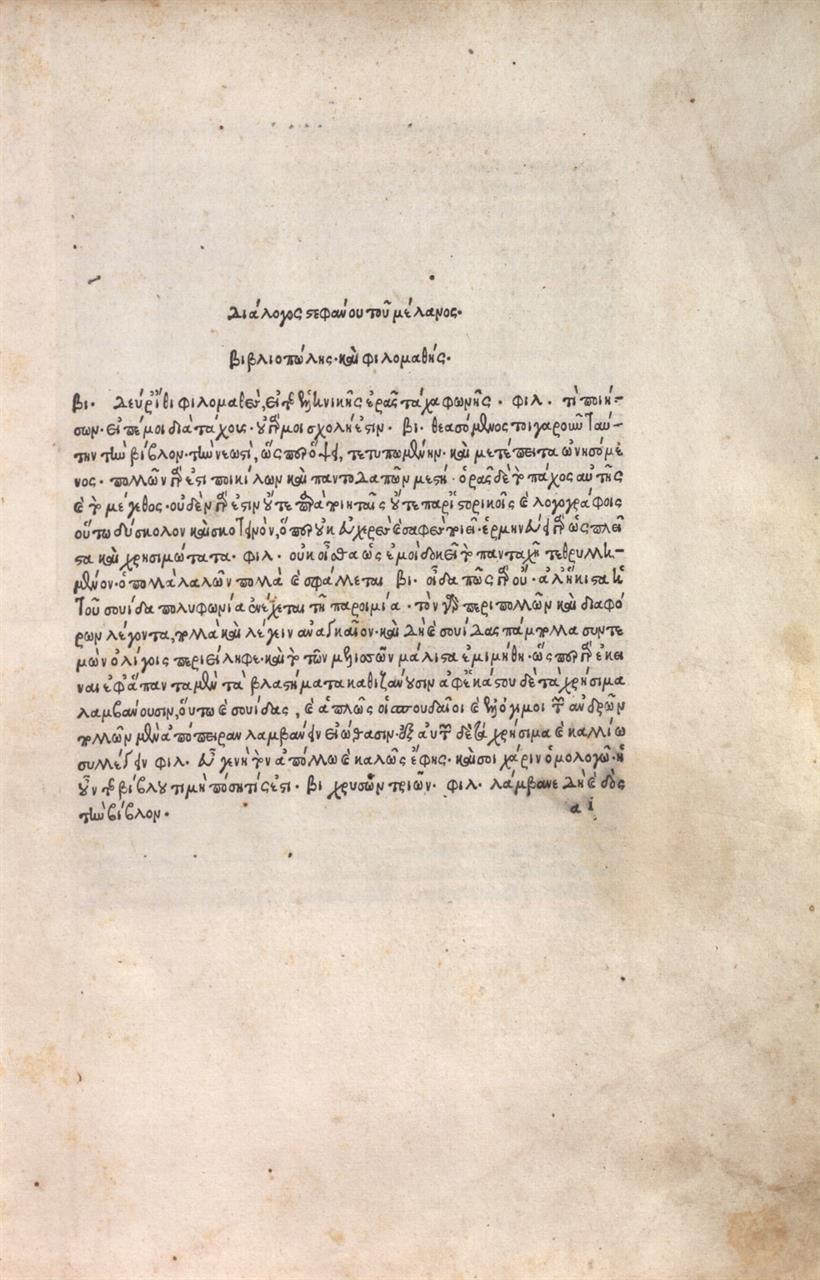 Διάλογος στεφάνου τοῦ μέλανος.
βιβλιοπώλης. καὶ φιλομαθής.
βι. Δεῦρ' ἴθι φιλομαθὲς, εἰ τῆς ἑλληνικῆς ἐρᾷς τάχα φωνῆς. φιλ. τί ποιή-
σων. εἰπέ μοι διὰ τάχους. οὐ γάρ μοι σχολή ἐστιν. βι. θεασόμενος τοιγαροῦν ταύ-
την τὴν βίβλον. τὴν νεωστὶ, ὥσπερ ὄψει, τετυπωμένην. καὶ μετέπειτα ὠνησόμε
νος. πολλῶν γάρ ἐστι ποικίλων καὶ παντοδαπῶν μεστή. ὁρᾷς δὲ τὸ πάχος αὐτῆς
καὶ τὸ μέγεθος. οὐδὲν γάρ ἐστιν οὔτε παρὰ ποιηταῖς οὔτε παρ' ἱστορικοῖς καὶ λογογράφοις
οὕτω δύσκολον καὶ σκοτεινὸν, ὅπερ οὐκ εὐχερὲς καὶ σαφὲς ποιεῖ. ἑρμηνεύει γὰρ ὡς πλεῖ
στα καὶ χρησιμώτατα. φιλ. οὐκ οἶσθα ὡς ἐμοὶ δοκεῖ τὸ πανταχῆ τεθρυλλη-
μένον. ὁ πολλὰ λαλῶν πολλὰ καὶ σφάλλεται βι. οἶδα πῶς γὰρ οὔ. ἀλλ' ἥκιστα ἡ
τοῦ σουίδα πολυφωνία ἐνέχεται τῇ παροιμίᾳ. τὸν γὰρ περὶ πολλῶν καὶ διαφό
ρων λέγοντα, πολλὰ καὶ λέγειν ἀναγκαῖον. καὶ δὴ καὶ σουίδας πάμπολλα συντε
μὼν ὀλίγοις περιείληφε. καὶ τὸ τῶν μελισσῶν μάλιστα ἐμιμήθη. ὥσπερ γὰρ ἐκεῖ
ναι ἐφ' ἅπαντα μὲν τὰ βλαστήματα καθιζάνουσιν ἀφ' ἑκάστου δὲ τὰ χρήσιμα
λαμβάνουσιν, οὕτω καὶ σουίδας, καὶ ἁπλῶς οἱ σπουδαῖοι καὶ ἐλλόγιμοι τῶν ἀνδρῶν
πολλῶν μὲν ἀπόπειραν λαμβάνειν εἰώθασιν. ἐξ αὐτῶν δὲ τὰ χρήσιμα καὶ καλλίω
συλλέγειν φιλ. εὖγε νὴ τὸν ἀπόλλω καὶ καλῶς ἔφης. καὶ σοι χάριν ὁμολογῶ. ἡ
οὖν τῆς βίβλου τιμὴ πόση τίς ἐστι. βι χρυσῶν τριῶν. φιλ. λάμβανε δὴ καὶ δὸς
τὴν βίβλον.
a i